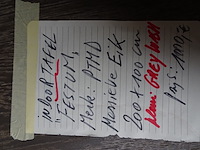 INDOOR TAFEL
"FESTUM"
Merk: PTMD
Massieve Eik
200 x 100 cm
Kleur: GREY WASH
Prijs: 1100,-€